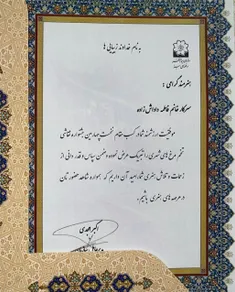 به نام خداوند زیبایی ها
هنرمند گرامی :
سرکار خانم فاطمه داداش زاده
موفقیت ارزشمند شما در کسب مقام نخست چهارمین جشنواره نقاشی
تخم مرغ های شهری را تبریک عرض نموده و ضمن سپاس و قدر دانی از
زحمات و تلاش هنری شما، امید آن داریم که همواره شاهد حضورتان
در عرصه های هنری باشیم.
اکبر